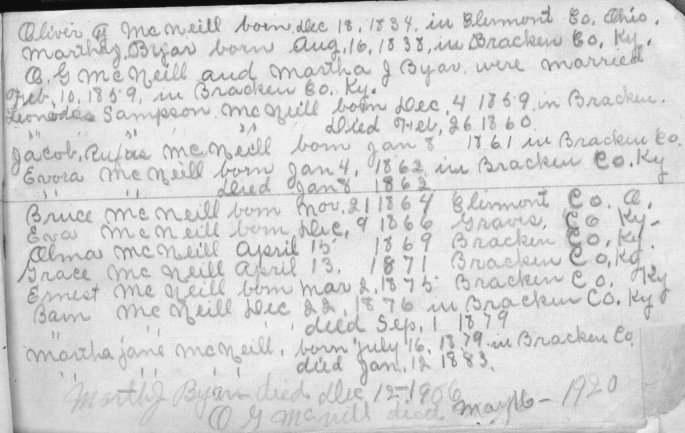 Oliver G McNeill born Dec 18, 1834, in Clermont Co. Ohio.
Martha J. Byar born Aug, 16, 1838, in Bracken Co, Ky,
O. G McNeill and Martha J Byar were married
Feb, 10, 1859, in Bracken Co. Ky.
Sampson McNeill born Dec, 4 1859 in Bracken.
" " " " Died Feb, 26 1860
Jacob, Rufus McNeill born Jan 8 1861 in Bracken Co.
Evora McNeill born Jan 4, 1862 in Bracken Co. Ky
" " died Jan 8 1862
Bruce McNeill born Nov, 21 1864 Clermont Co. O.
Eva McNeill born Dec, 9 1866 Graves, Co Ky-
Alma McNeill April 15 1869 Bracken Co, Ky.
Grace McNeill April 13. 1871 Bracken Co, Ky
Ernest McNeill born Mar 2, 1875 Bracken Co. Ky
Bam McNeill Dec 22, 1876 in Bracken Co. Ky
" " " died Sep, 1 1879
Martha Jane McNeill, born July 16, 1879 in Bracken Co
" " " died Jan, 12 1883.
Martha J Byar died Dec 12-1906
O G McNeill died May 16 - 1920